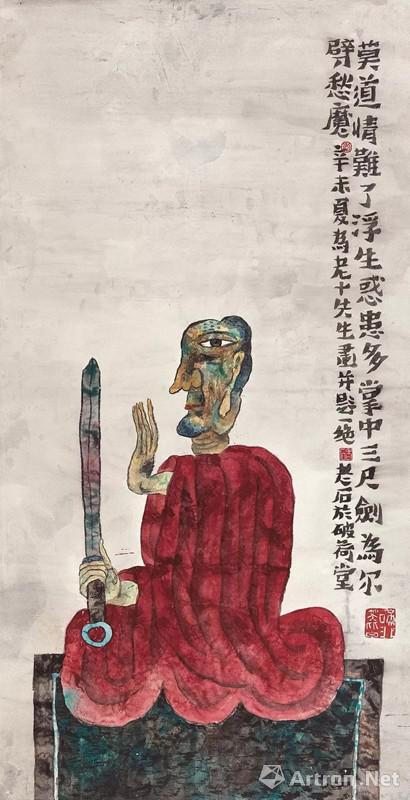 莫道情難了浮生惑患多掌中三尺劍為尔
劈愁魔辛未夏為老十先生畫并題一絶老石於破荷堂
Artron.Net